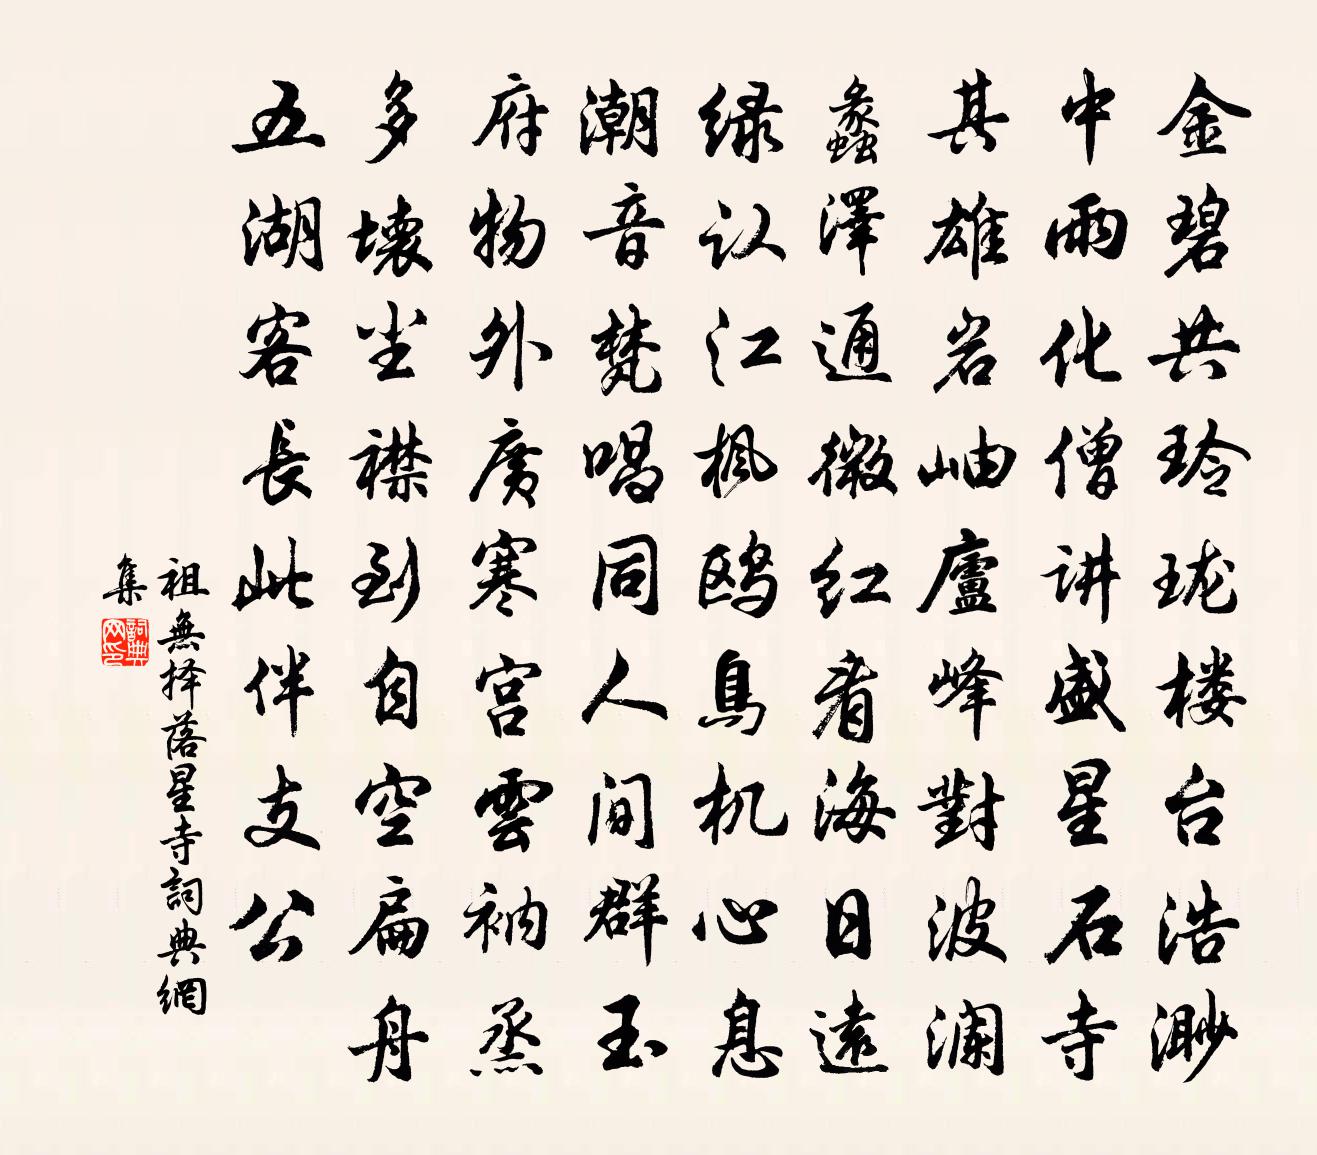 金碧共玲珑楼台浩渺
中雨化僧讲盛星石寺
其雄岩岫廬峰對波澜
蠡澤通微红看海日遠
绿认江枫鸥鳥机心息
潮音梵唱同人间群玉
府物外廣寒宫雲衲烝
多壊尘襟到自空扁舟
五湖客長此伴支公
祖無择落星寺詞典網
集
詞典
网印